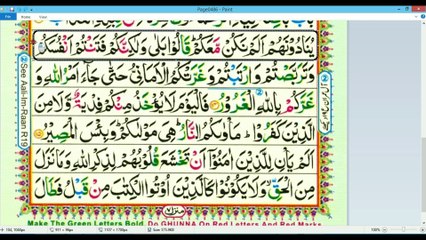 Page0486 - Paint
یُنَادُوْنَهُمْ اَلَمْ نَكُنْ مَّعَكُمْ ؕ قَالُوْا بَلٰى وَلٰكِنَّكُمْ فَتَنْتُمْ اَنْفُسَكُمْ
وَتَرَبَّصْتُمْ وَارْتَبْتُمْ وَغَرَّتْكُمُ الْاَمَانِیُّ حَتّٰى جَآءَ اَمْرُ اللّٰهِ وَ
غَرَّكُمْ بِاللّٰهِ الْغَرُوْرُ فَالْیَوْمَ لَا یُؤْخَذُ مِنْكُمْ فِدْیَةٌ وَّلَا مِنَ
الَّذِیْنَ كَفَرُوْا ؕ مَاْوٰىكُمُ النَّارُ ؕ هِیَ مَوْلٰىكُمْ ؕ وَبِئْسَ الْمَصِیْرُ
اَلَمْ یَاْنِ لِلَّذِیْنَ اٰمَنُوْۤا اَنْ تَخْشَعَ قُلُوْبُهُمْ لِذِكْرِ اللّٰهِ وَمَا نَزَلَ
مِنَ الْحَقِّ ۙ وَلَا یَكُوْنُوْا كَالَّذِیْنَ اُوْتُوا الْكِتٰبَ مِنْ قَبْلُ فَطَالَ
See Aali-Im-Raan R19
Make The Green Letters Bold. Do GHUNNA On Red Letters And Red Marks
100%